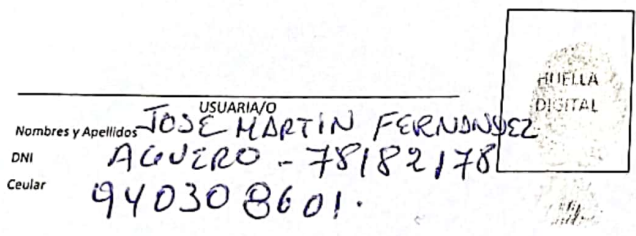 HUELLA
DIGITAL
USUARIA/O
Nombres y Apellidos JOSE MARTIN FERNANDEZ
DNI AGUERO - 78182178
Ceular 940308601.